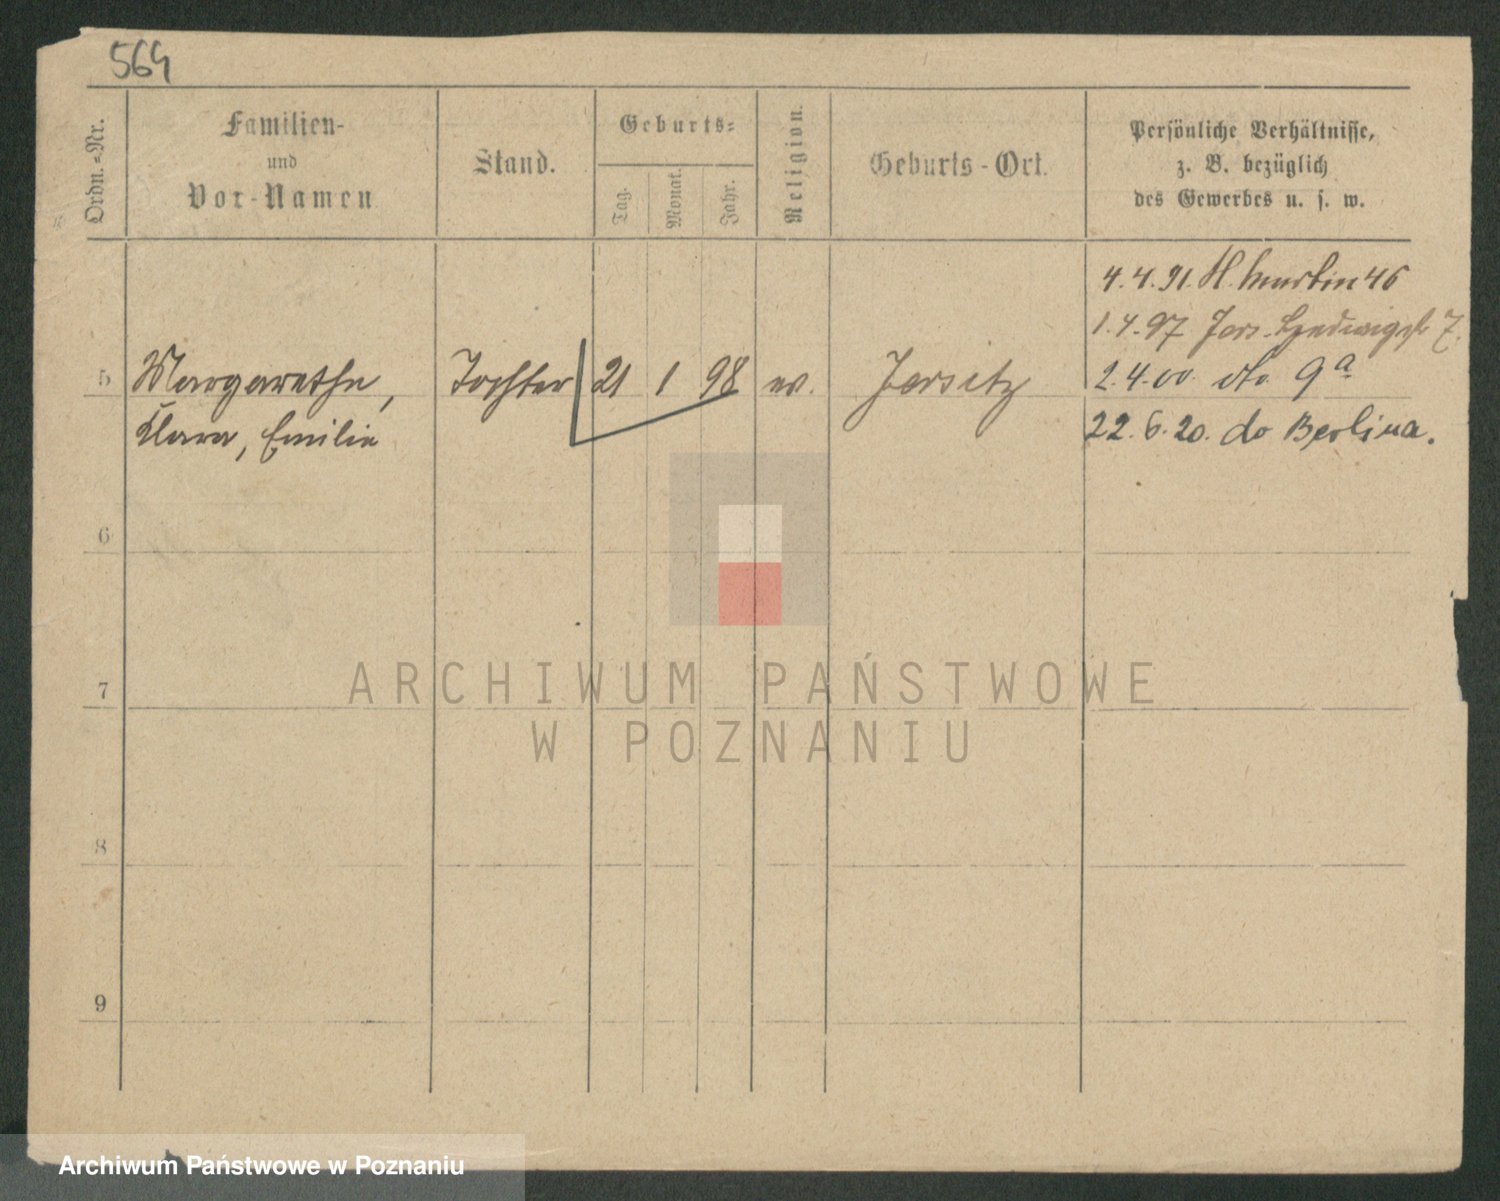 564
Ordn.-Nr.
Familien-
und
Vor-Namen
Stand.
Geburts-
Tag.
Monat.
Jahr.
Religion.
Geburts-Ort.
Persönliche Verhältnisse,
z. B. bezüglich
des Gewerbes u. s. w.
4.4.91. St. Martin 46
1.4.97 Jers. Hedwigstr 7.
5 Margarethe, Tochter 21 1 98 ev. Jersitz 2.4.00. dto. 9a
Klara, Emilie 22.6.20. do Berlina.
6
7
8
9
ARCHIWUM PAŃSTWOWE
W POZNANIU
Archiwum Państwowe w Poznaniu